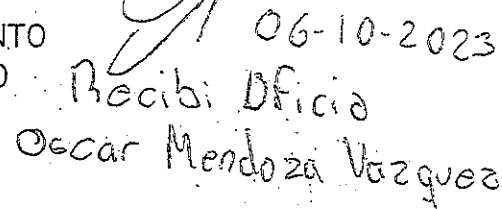 NTO 06-10-2023
O Recibi Oficio
Oscar Mendoza Vazquez